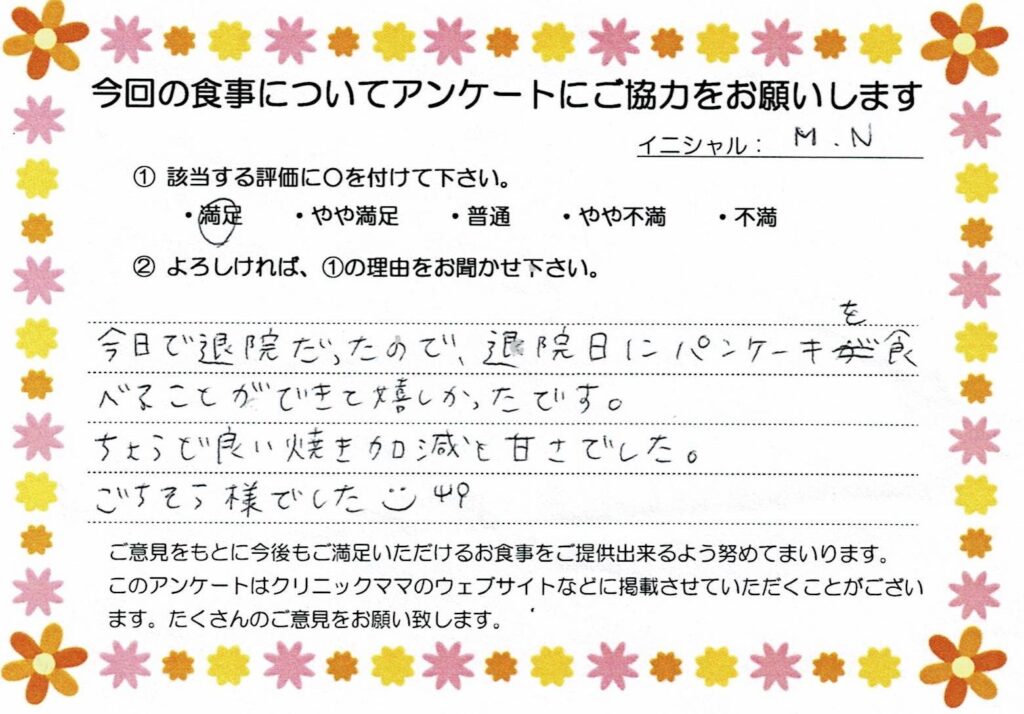 今回の食事についてアンケートにご協力をお願いします
イニシャル： M.N
① 該当する評価に〇を付けて下さい。
・満足 ・やや満足 ・普通 ・やや不満 ・不満
② よろしければ、①の理由をお聞かせ下さい。
今日で退院だったので、退院日にパンケーキを食
べることができて嬉しかったです。
ちょうど良い焼き加減と甘さでした。
ごちそう様でした
ご意見をもとに今後もご満足いただけるお食事をご提供出来るよう努めてまいります。
このアンケートはクリニックママのウェブサイトなどに掲載させていただくことがござい
ます。たくさんのご意見をお願い致します。